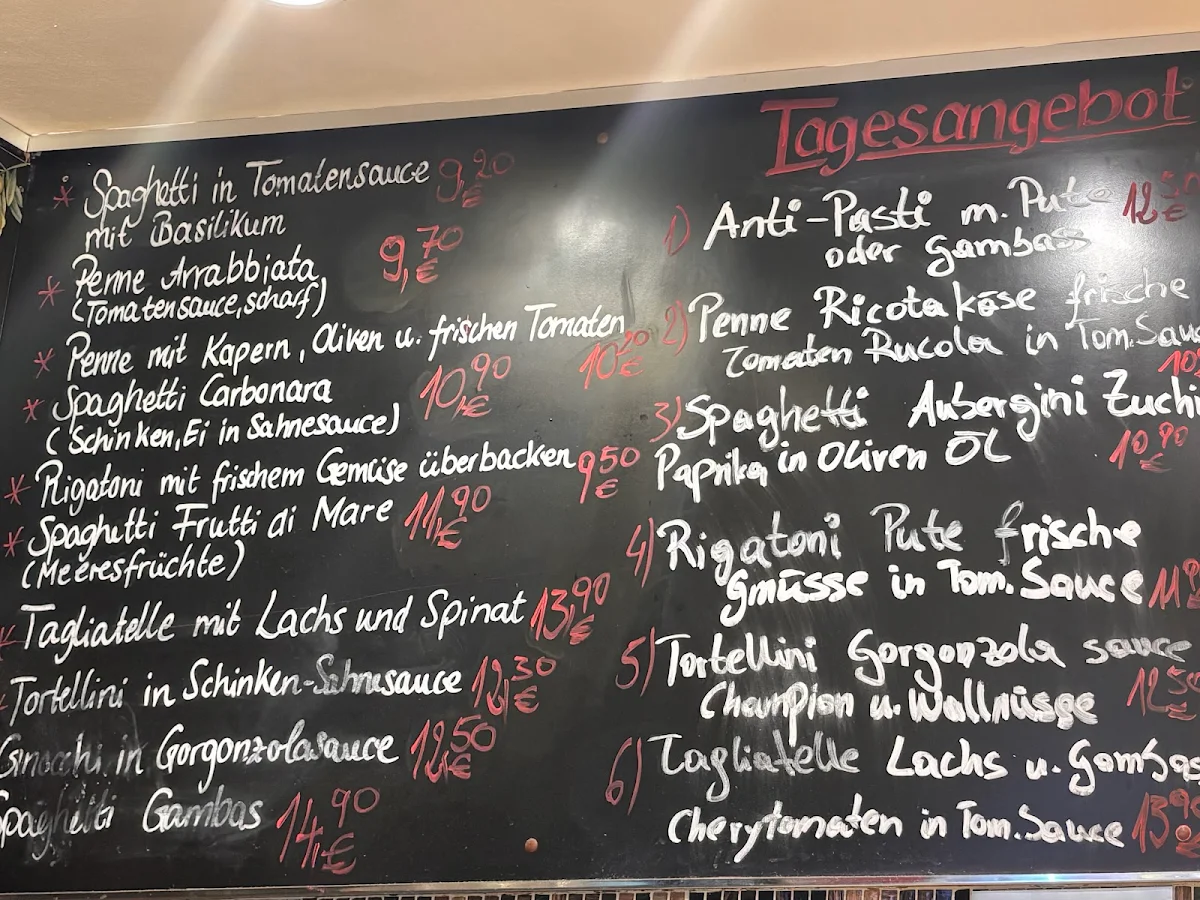 * Spaghetti in Tomatensauce 9,20 €
mit Basilikum
* Penne Arrabbiata 9,70 €
(Tomatensauce, scharf)
* Penne mit Kapern, Oliven u. frischen Tomaten 10,20 €
* Spaghetti Carbonara 10,90 €
(Schinken, Ei in Sahnesauce)
* Rigatoni mit frischem Gemüse überbacken 9,50 €
* Spaghetti Frutti di Mare 11,90 €
(Meeresfrüchte)
* Tagliatelle mit Lachs und Spinat 13,90 €
* Tortellini in Schinken-Sahnesauce 12,30 €
Gnocchi in Gorgonzolasauce 12,50 €
Spaghetti Gambas 14,90 €
Tagesangebot
1) Anti-Pasti m. Pute 12,50 €
oder Gambas
2) Penne Ricotakäse frische
Tomaten Rucola in Tom. Sauc
10,
3) Spaghetti Aubergini Zuchi
Paprika in Oliven ÖL 10,90 €
4) Rigatoni Pute frische
Gmüsse in Tom. Sauce 11,9
5) Tortellini Gorgonzola sauce
Champion u. Wallnüsse 12,50 €
6) Tagliatelle Lachs u. Gambas
Cherytomaten in Tom. Sauce 13,90